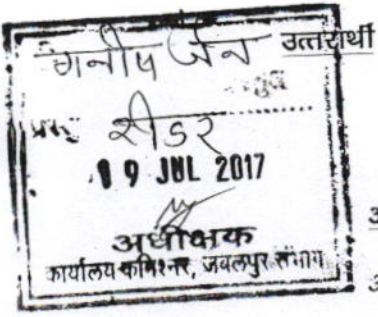 मनीष जैन उत्तरार्थी
रीडर
19 JUL 2017
अधीक्षक
कार्यालय कमिश्नर, जबलपुर संभाग